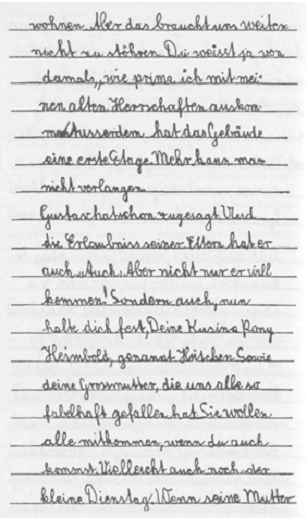 wohnen. Aber das braucht uns weiter
nicht zu stöhren. Du weisst ja von
damals, wie prima ich mit mei-
nen alten Herrschaften auskom
me. Ausserdem hat das Gebäude
eine erste Etage. Mehr kann man
nicht verlangen.
Gustav hat schon zugesagt. Und
die Erlaubniss seiner Eltern hat er
auch. „Auch. Aber nicht nur er will
kommen! Sondern auch, nun
halte dich fest, Deine Kusine Pony
Heimbold, genannt Hütchen. Sowie
deine Grossmutter, die uns alle so
fabelhaft gefallen hat. Sie wollen
alle mitkommen, wenn du auch
kommst. Vielleicht auch noch der
kleine Dienstag. Wenn seine Mutter